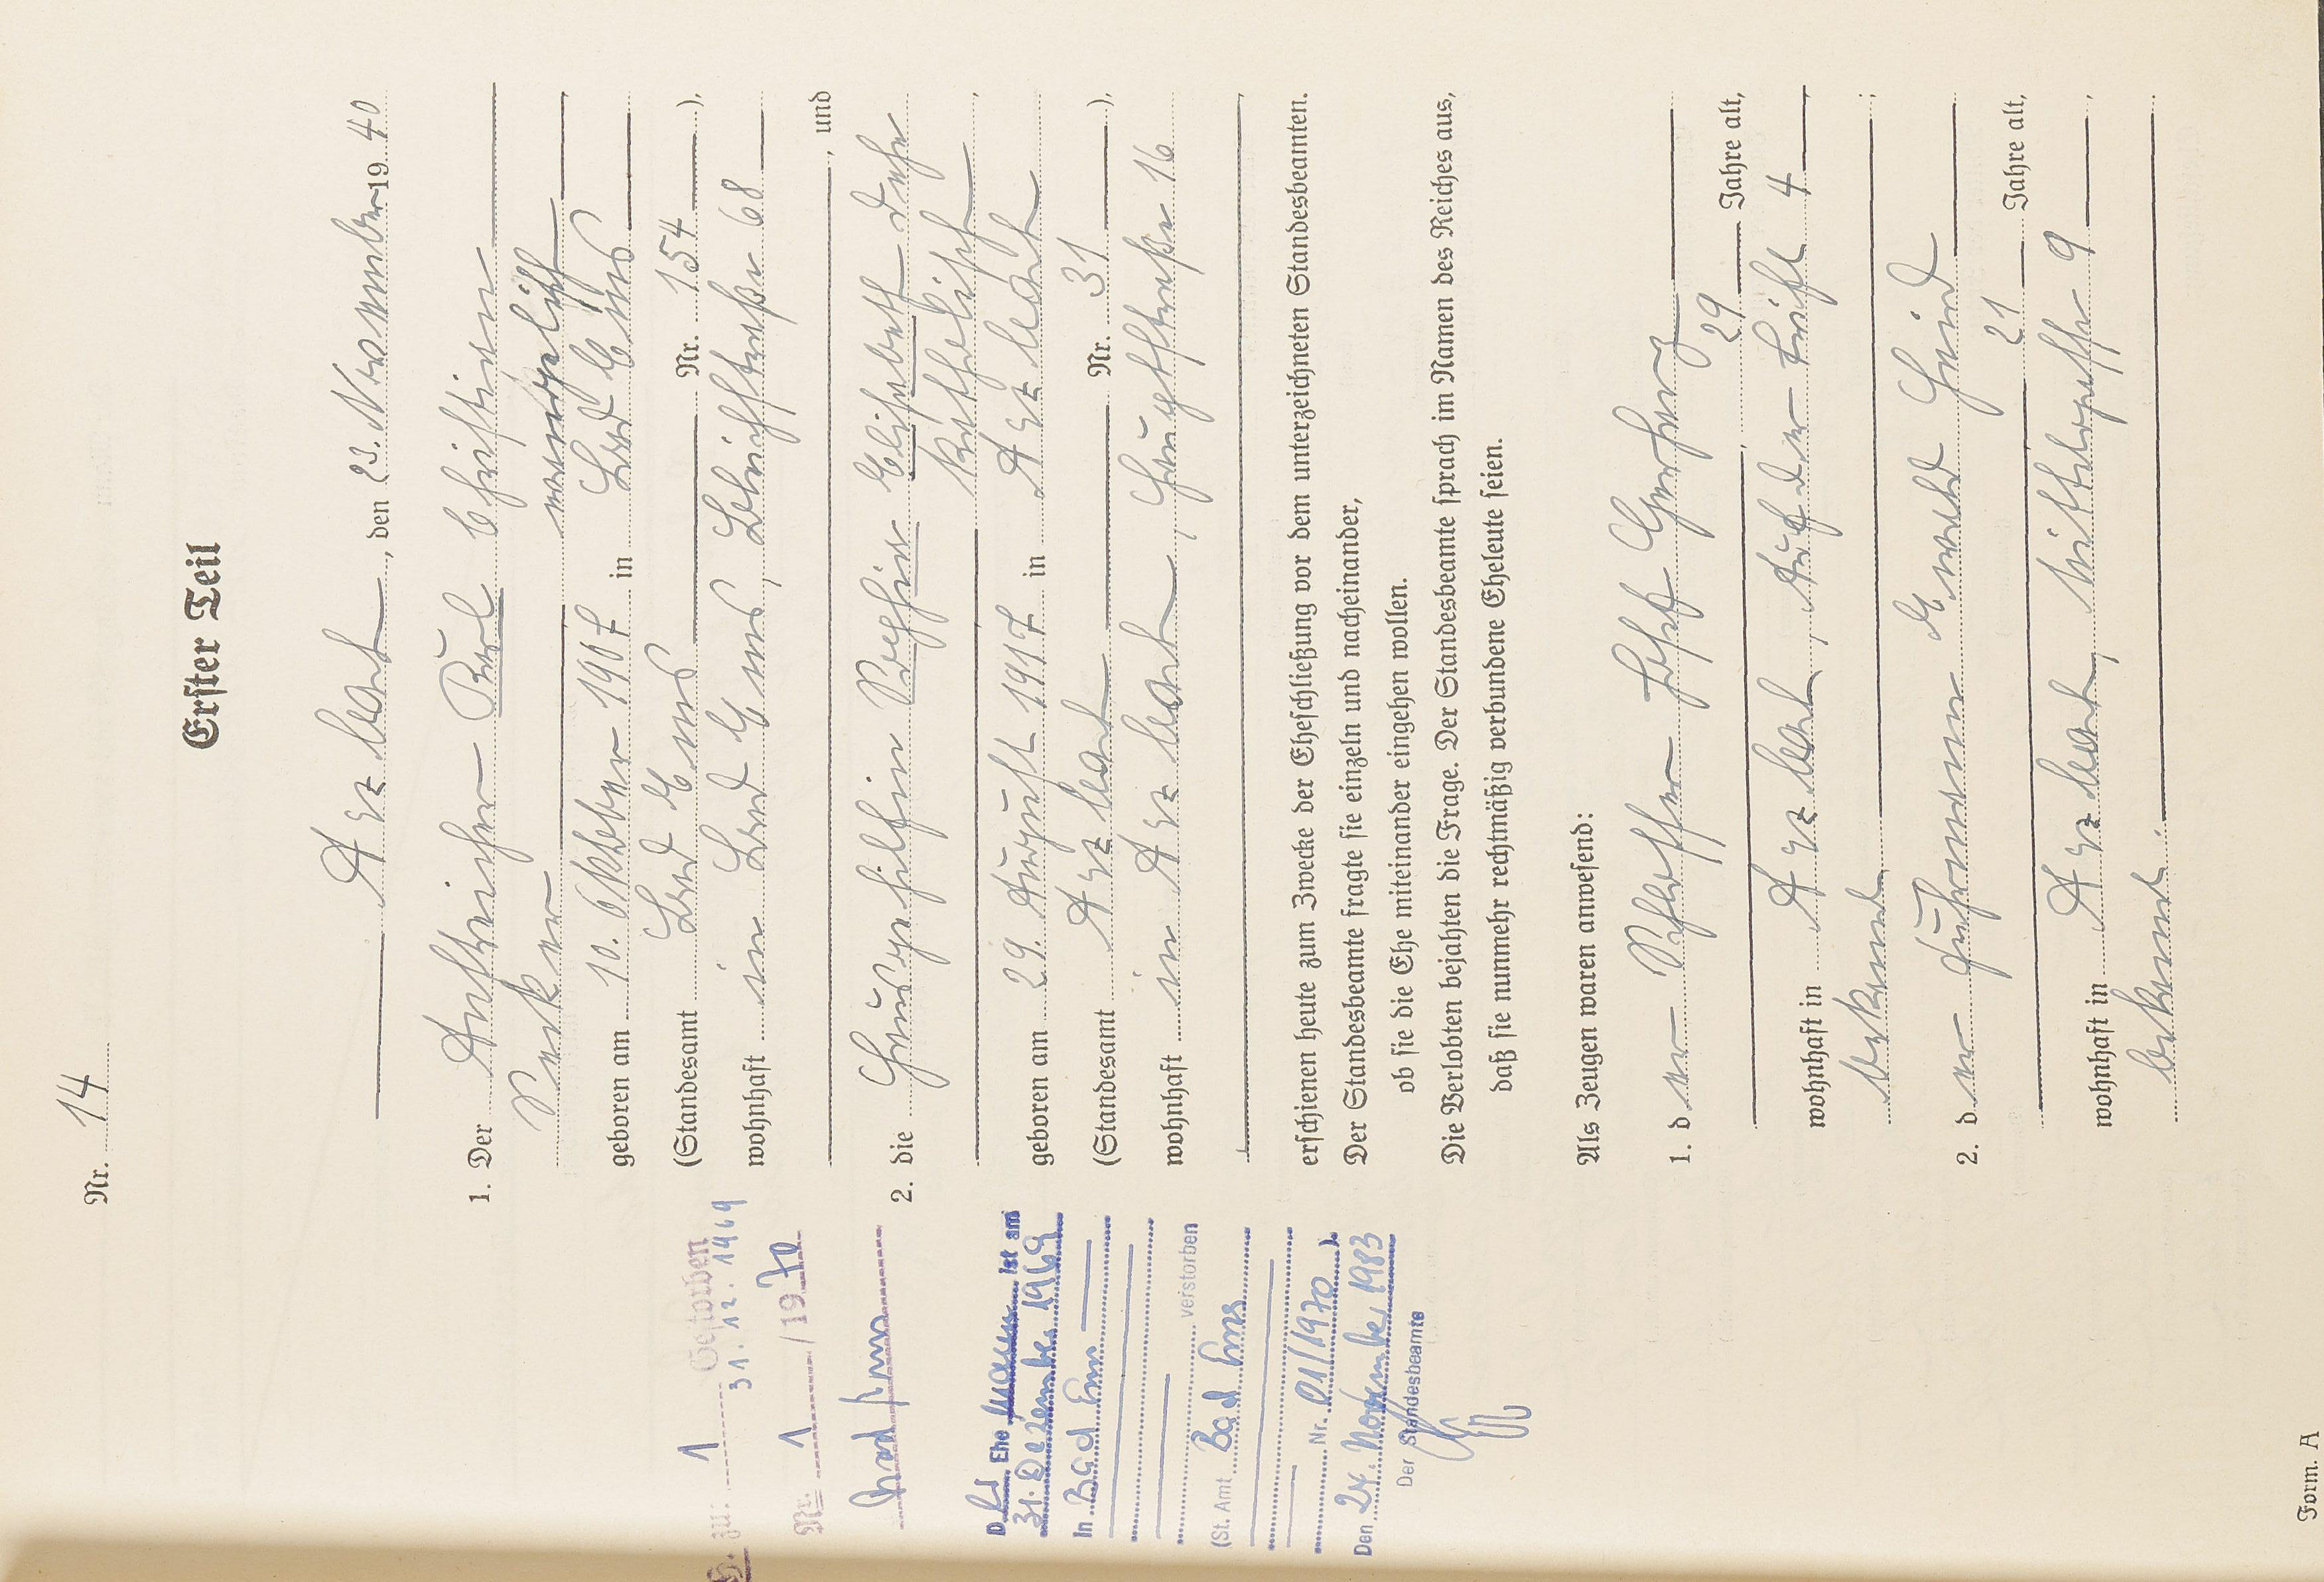 Nr. 14
Erster Teil
Arzbach, den 23. November 1940
1. Der Anstreicher Paul Christian
Becker
geboren am 10. Oktober 1907 in Bad Ems
(Standesamt Bad Ems Nr. 154),
wohnhaft in Bad Ems,
68
, und
2. die Hausgehilfin Regina Elisabeth
katholisch
geboren am 29. August 1917 in Arzbach
(Standesamt Arzbach Nr. 31),
wohnhaft in Arzbach, Hauptstraße 16
erschienen heute zum Zwecke der Eheschließung vor dem unterzeichneten Standesbeamten.
Der Standesbeamte fragte sie einzeln und nacheinander,
ob sie die Ehe miteinander eingehen wollen.
Die Verlobten bejahten die Frage. Der Standesbeamte sprach im Namen des Reiches aus,
daß sie nunmehr rechtmäßig verbundene Eheleute seien.
Als Zeugen waren anwesend:
1. der Schlosser
29 Jahre alt,
wohnhaft in Arzbach, Auf der 4
bekannt;
2. der Fuhrmann Ewald
21 Jahre alt,
wohnhaft in Arzbach, 9
bekannt.
H. zu: 1 Gestorben
31.12.1969
Nr. 1 /1970
Bad Ems
Die Ehe Mann ist am
31. Dezember 1969
In Bad Ems
verstorben
(St. Amt Bad Ems
Nr. 01/1970).
Den 24. November 1983
Der Standesbeamte
Form. A